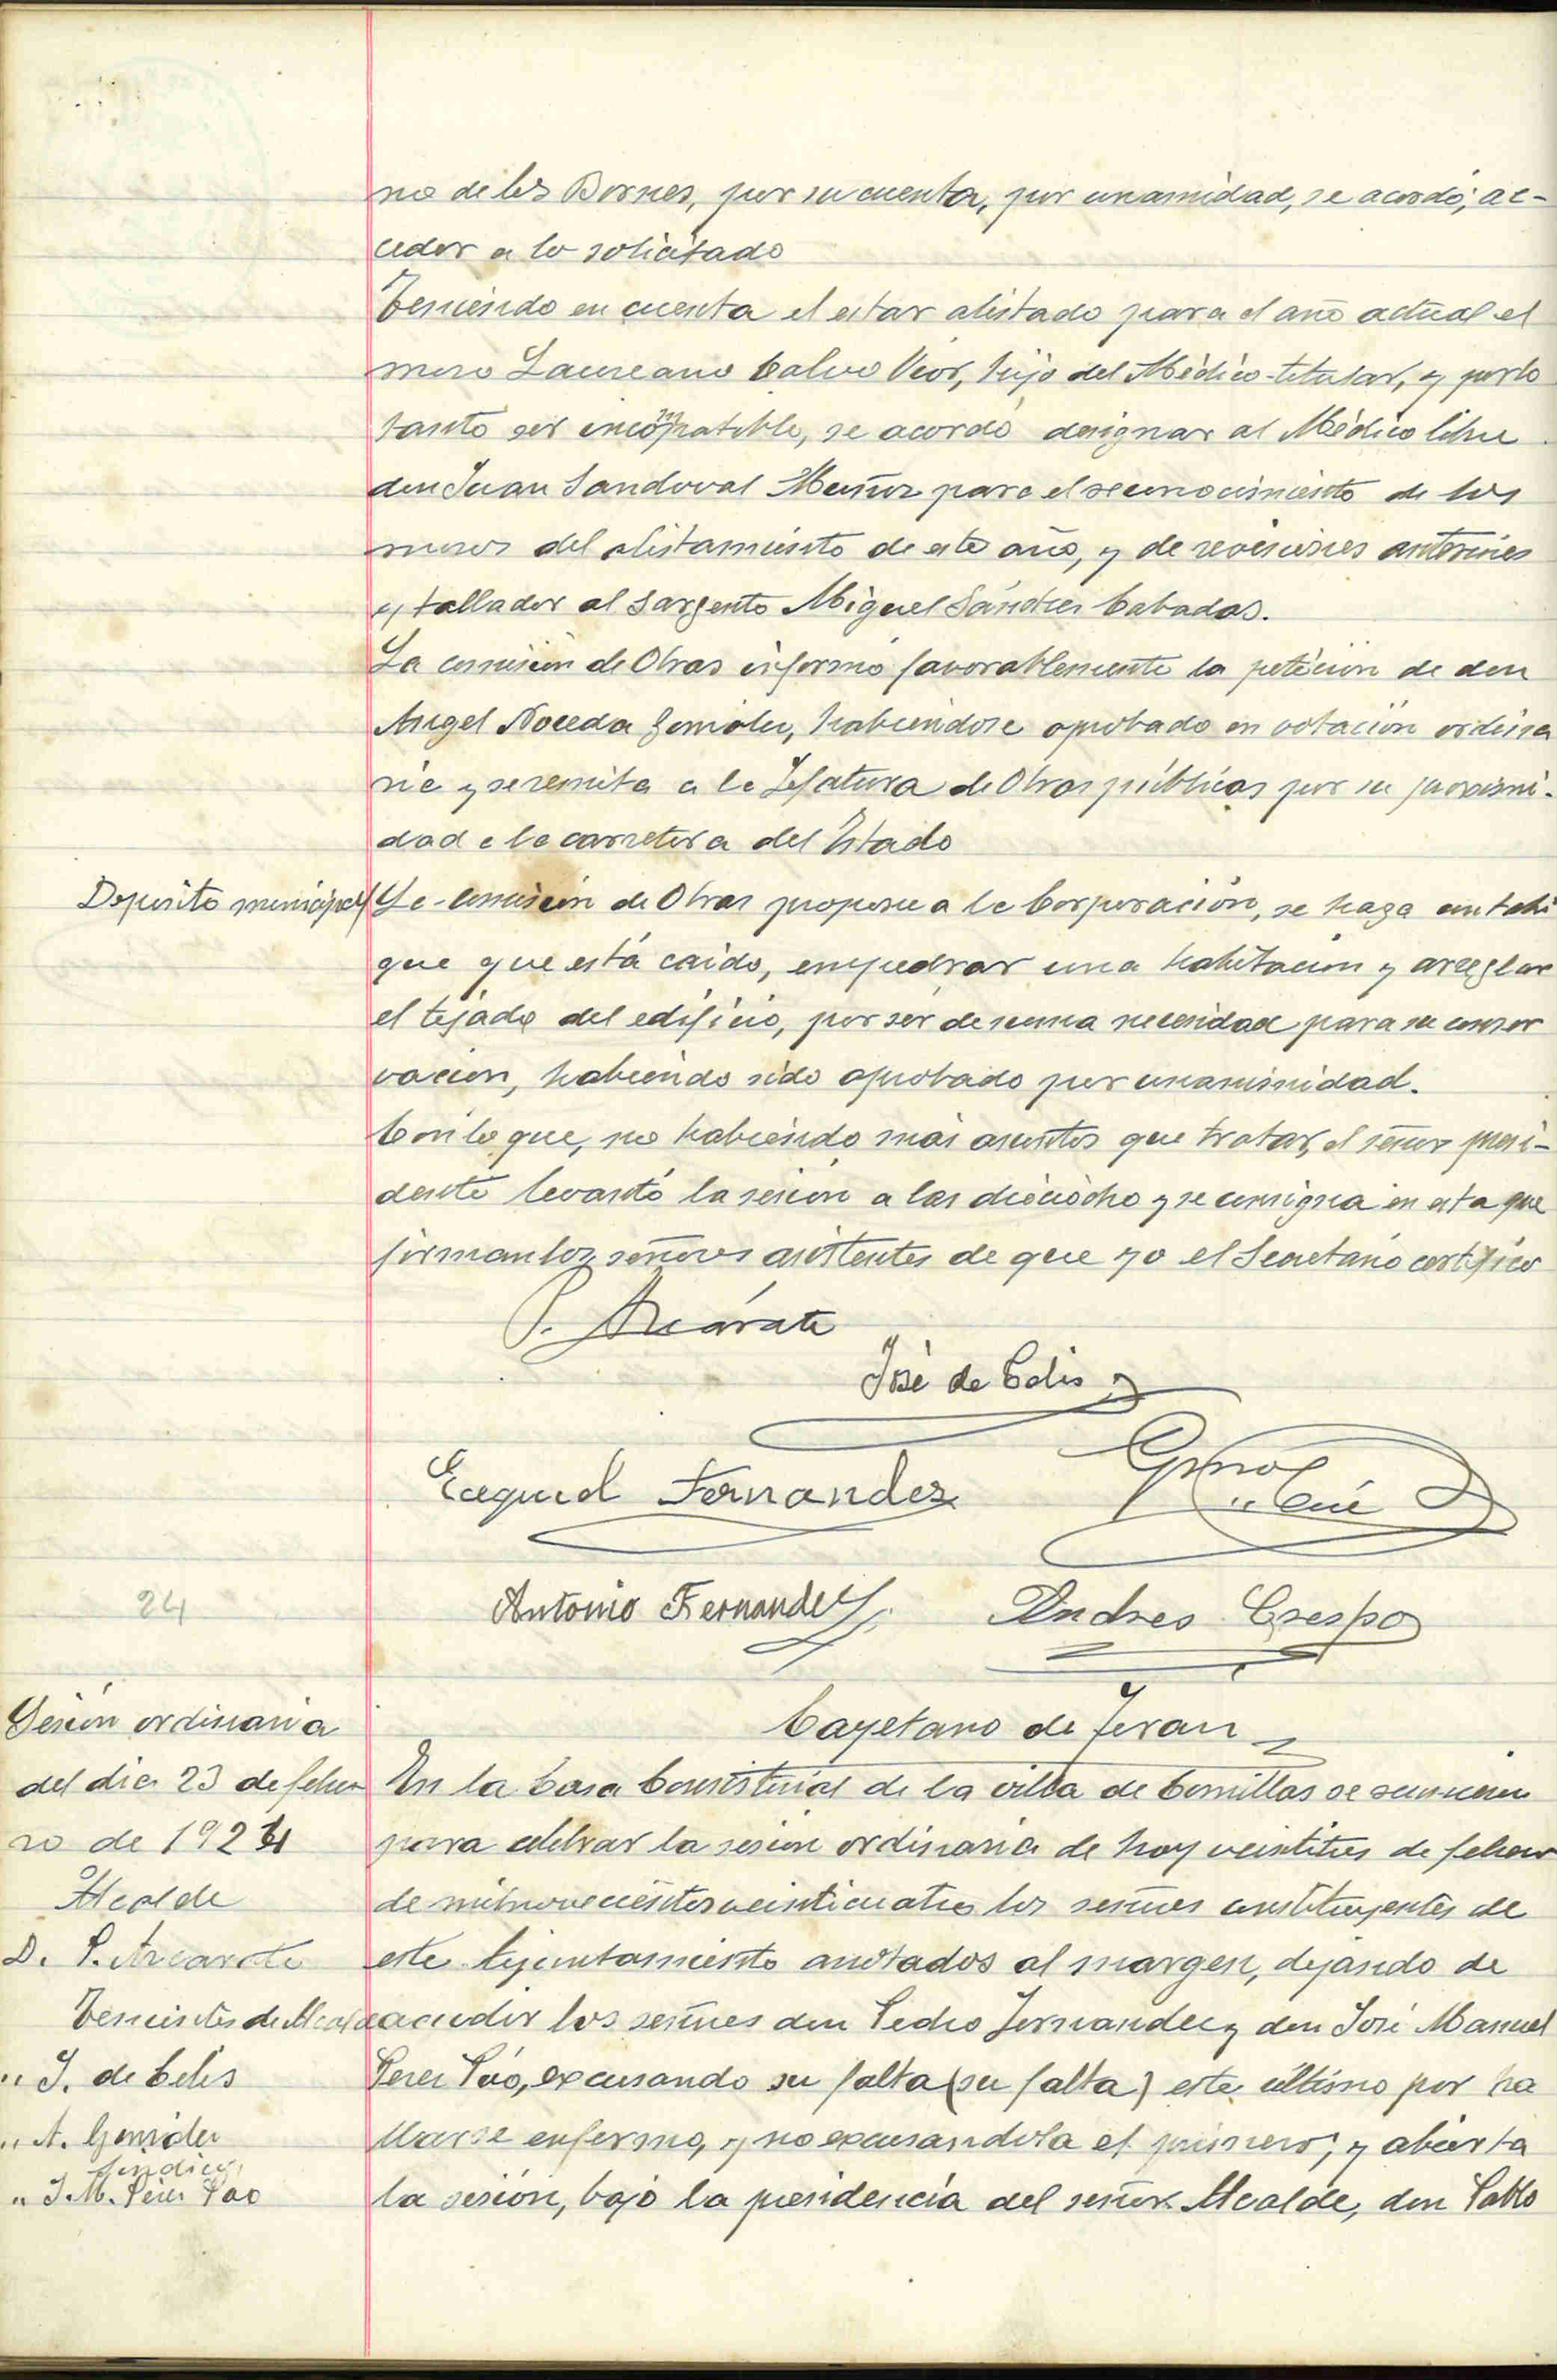 no de los Bornes, por su cuenta, por unamidad, se acordó, ac-
ceder a lo solicitado
Teniendo en cuenta el estar alistado para el año actual el
mozo Laureano Calvo Vior, hijo del Médico titular, y por lo
tanto ser incompatible, se acordó designar al Médico libre
don Juan Sandoval Muñoz para el reconocimiento de los
mozos del alistamiento de este año, y de revisiones anteriores
y tallador al Sargento Miguel Sánchez Cabadas.
La comisión de Obras informó favorablemente la petición de don
Angel Noceda González, habiendose aprobado en votación ordina
ria y se remita a la Jefatura de Obras públicas por su proximi-
dad a la carretera del Estado
Deposito municipal
La comisión de Obras propone a la Corporación, se haga un tabi
que que está caido, empedrar una habitación y arreglar
el tejado del edificio, por ser de suma necesidad para su conser
vación, habiendo sido aprobado por unaminidad.
Con lo que, no habiendo más asuntos que tratar, el señor presi-
dente levantó la sesión a las dieciocho y se consigna en acta que
firman los señores asistentes de que yo el Secretario certifico
P. Azcárate
José de Celis
Ezequiel Fernandez
Antonio Fernandez
Andres Crespo
24
Cayetano de Teran
Sesión ordinaria
del dia 23 de febre
ro de 1924
Alcalde
D. P. Azcarate
Tenientes de Alcalde
" J. de Celis
" A. González
Sindico
" J. M. Pérez Pao
En la Casa Consistorial de la villa de Comillas se reunieron
para celebrar la sesión ordinaria de hoy veintitres de febrero
de mil novecientos veinticuatro los señores constituyentes de
este Ayuntamiento anotados al margen, dejando de
acudir los señores don Pedro Fernandez y don José Manuel
Perez Páo, excusando su falta (su falta) este último por ha
llarse enfermo, y no excusandola el primero; y abierta
la sesión, bajo la presidencia del señor Alcalde, don Pablo